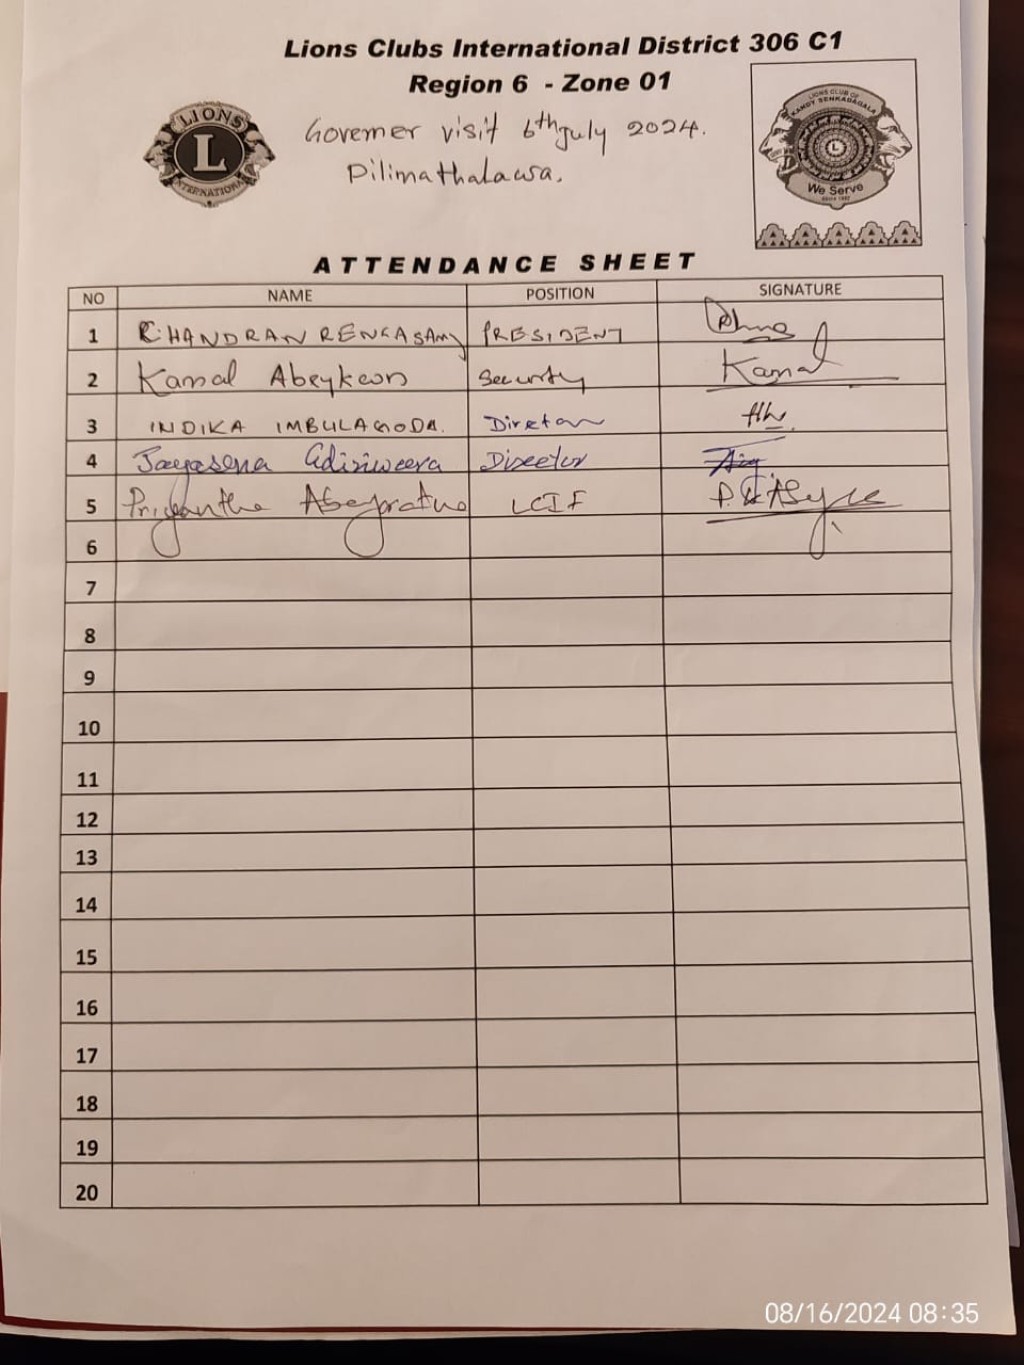 Lions Clubs International District 306 C1
Region 6 - Zone 01
Governer visit 6th July 2024.
Pilimathalawa.
LIONS
L
INTERNATIONAL
LIONS CLUB OF
KANDY SENKADAGALA
L
We Serve
ATTENDANCE SHEET
NO NAME POSITION SIGNATURE
1 CHANDRAN RENGASAMY PRESIDENT
2 Kamal Abeykoon Security Kamal
3 INDIKA IMBULAGODA. Director
4 Jayasena Adiriweera Director
5 Priyantha Abeyratne LCIF
6
7
8
9
10
11
12
13
14
15
16
17
18
19
20
08/16/2024 08:35